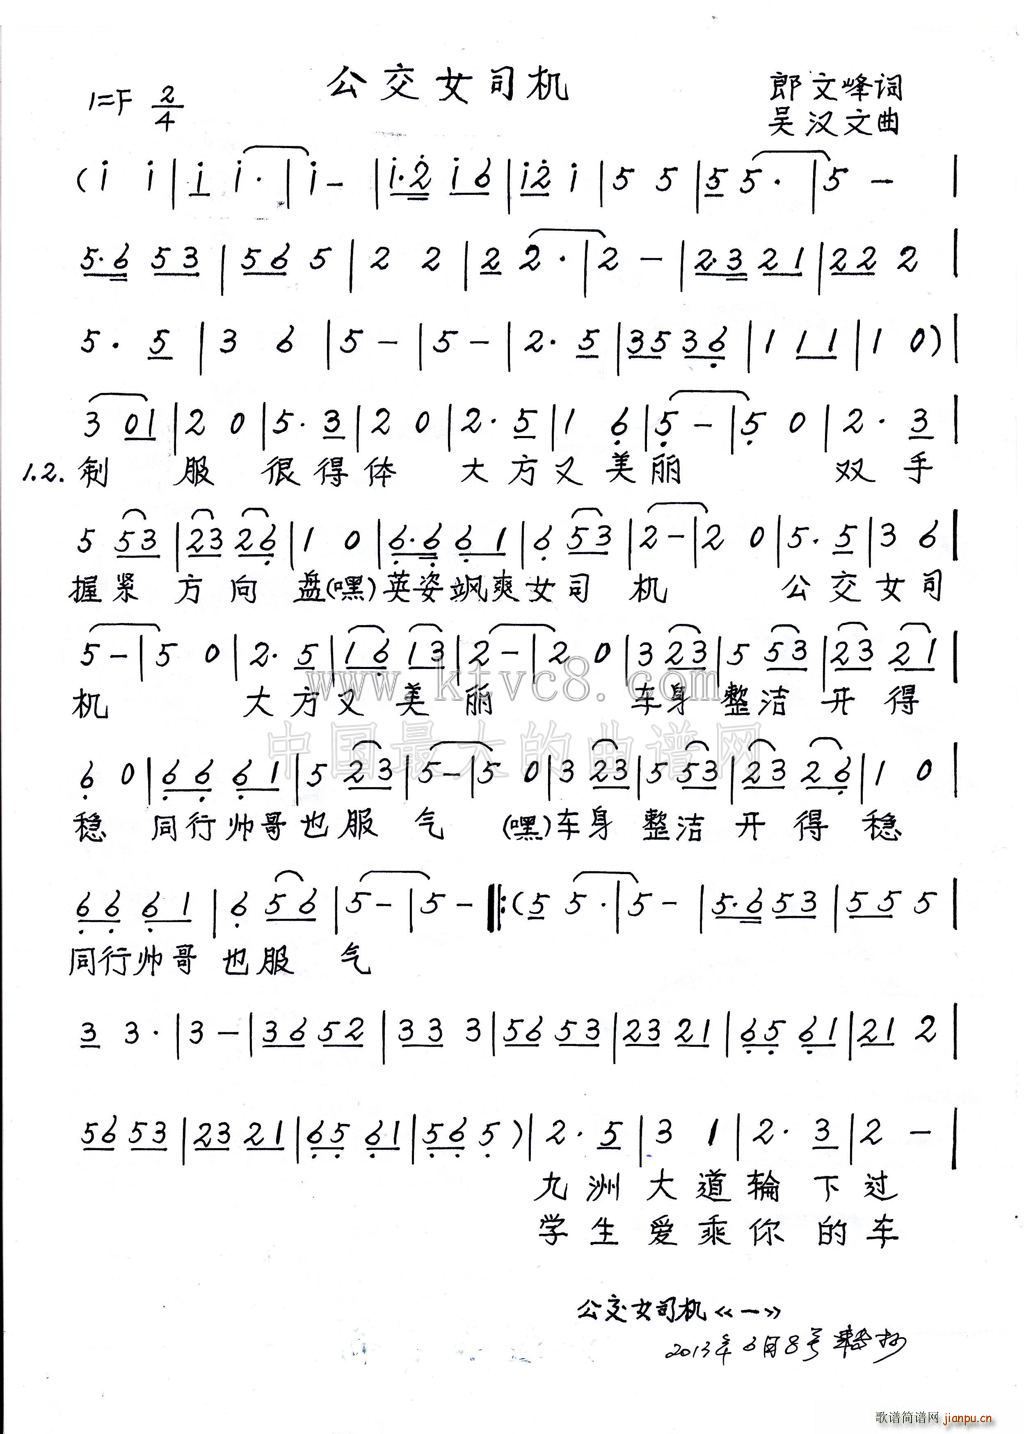 公交女司机
1=F 2/4
郎文峰词
吴汉文曲
(i i | i i· | i - | i·2 i6 | i2 i | 5 5 | 5 5· | 5 - |
5·6 53 | 56 5 | 2 2 | 2 2· | 2 - | 2·3 21 | 22 2 |
5· 5 | 3 6 | 5 - | 5 - | 2· 5 | 35 36 | 1 11 | 1 0) |
3 01 | 2 0 | 5· 3 | 2 0 | 2· 5 | 1 6 | 5 - | 5 0 | 2· 3 |
1.2. 制 服 很得体 大方又美丽 双手
5 53 | 23 26 | 1 0 | 6·6 61 | 6 53 | 2 - | 2 0 | 5· 5 | 3 6 |
握紧 方向 盘(嘿)英姿飒爽女司 机 公交女司
5 - | 5 0 | 2· 5 | 16 13 | 2 - | 2 0 | 3 23 | 5 53 | 23 21 |
机 大方又美丽 车身整洁开得
6 0 | 66 61 | 5 23 | 5 - | 5 0 | 3 23 | 5 53 | 23 26 | 1 0
稳 同行帅哥也服气 (嘿)车身整洁开得稳
66 61 | 6 56 | 5 - | 5 - ‖: (5 5· | 5 - | 5·6 53 | 55 5 |
同行帅哥也服气
3 3· | 3 - | 36 52 | 33 3 | 56 53 | 23 21 | 65 61 | 21 2 |
56 53 | 23 21 | 65 61 | 56 5) | 2· 5 | 3 1 | 2· 3 | 2 - |
九洲大道轮下过
学生爱乘你的车
公交女司机《一》
2013年6月8号
www.ktvc8.com
中国最大的曲谱网
歌谱简谱网
jianpu.cn